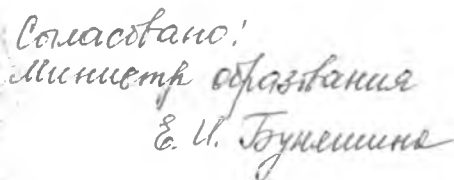 Согласовано!
Министр образования
Е. И. Буняшина